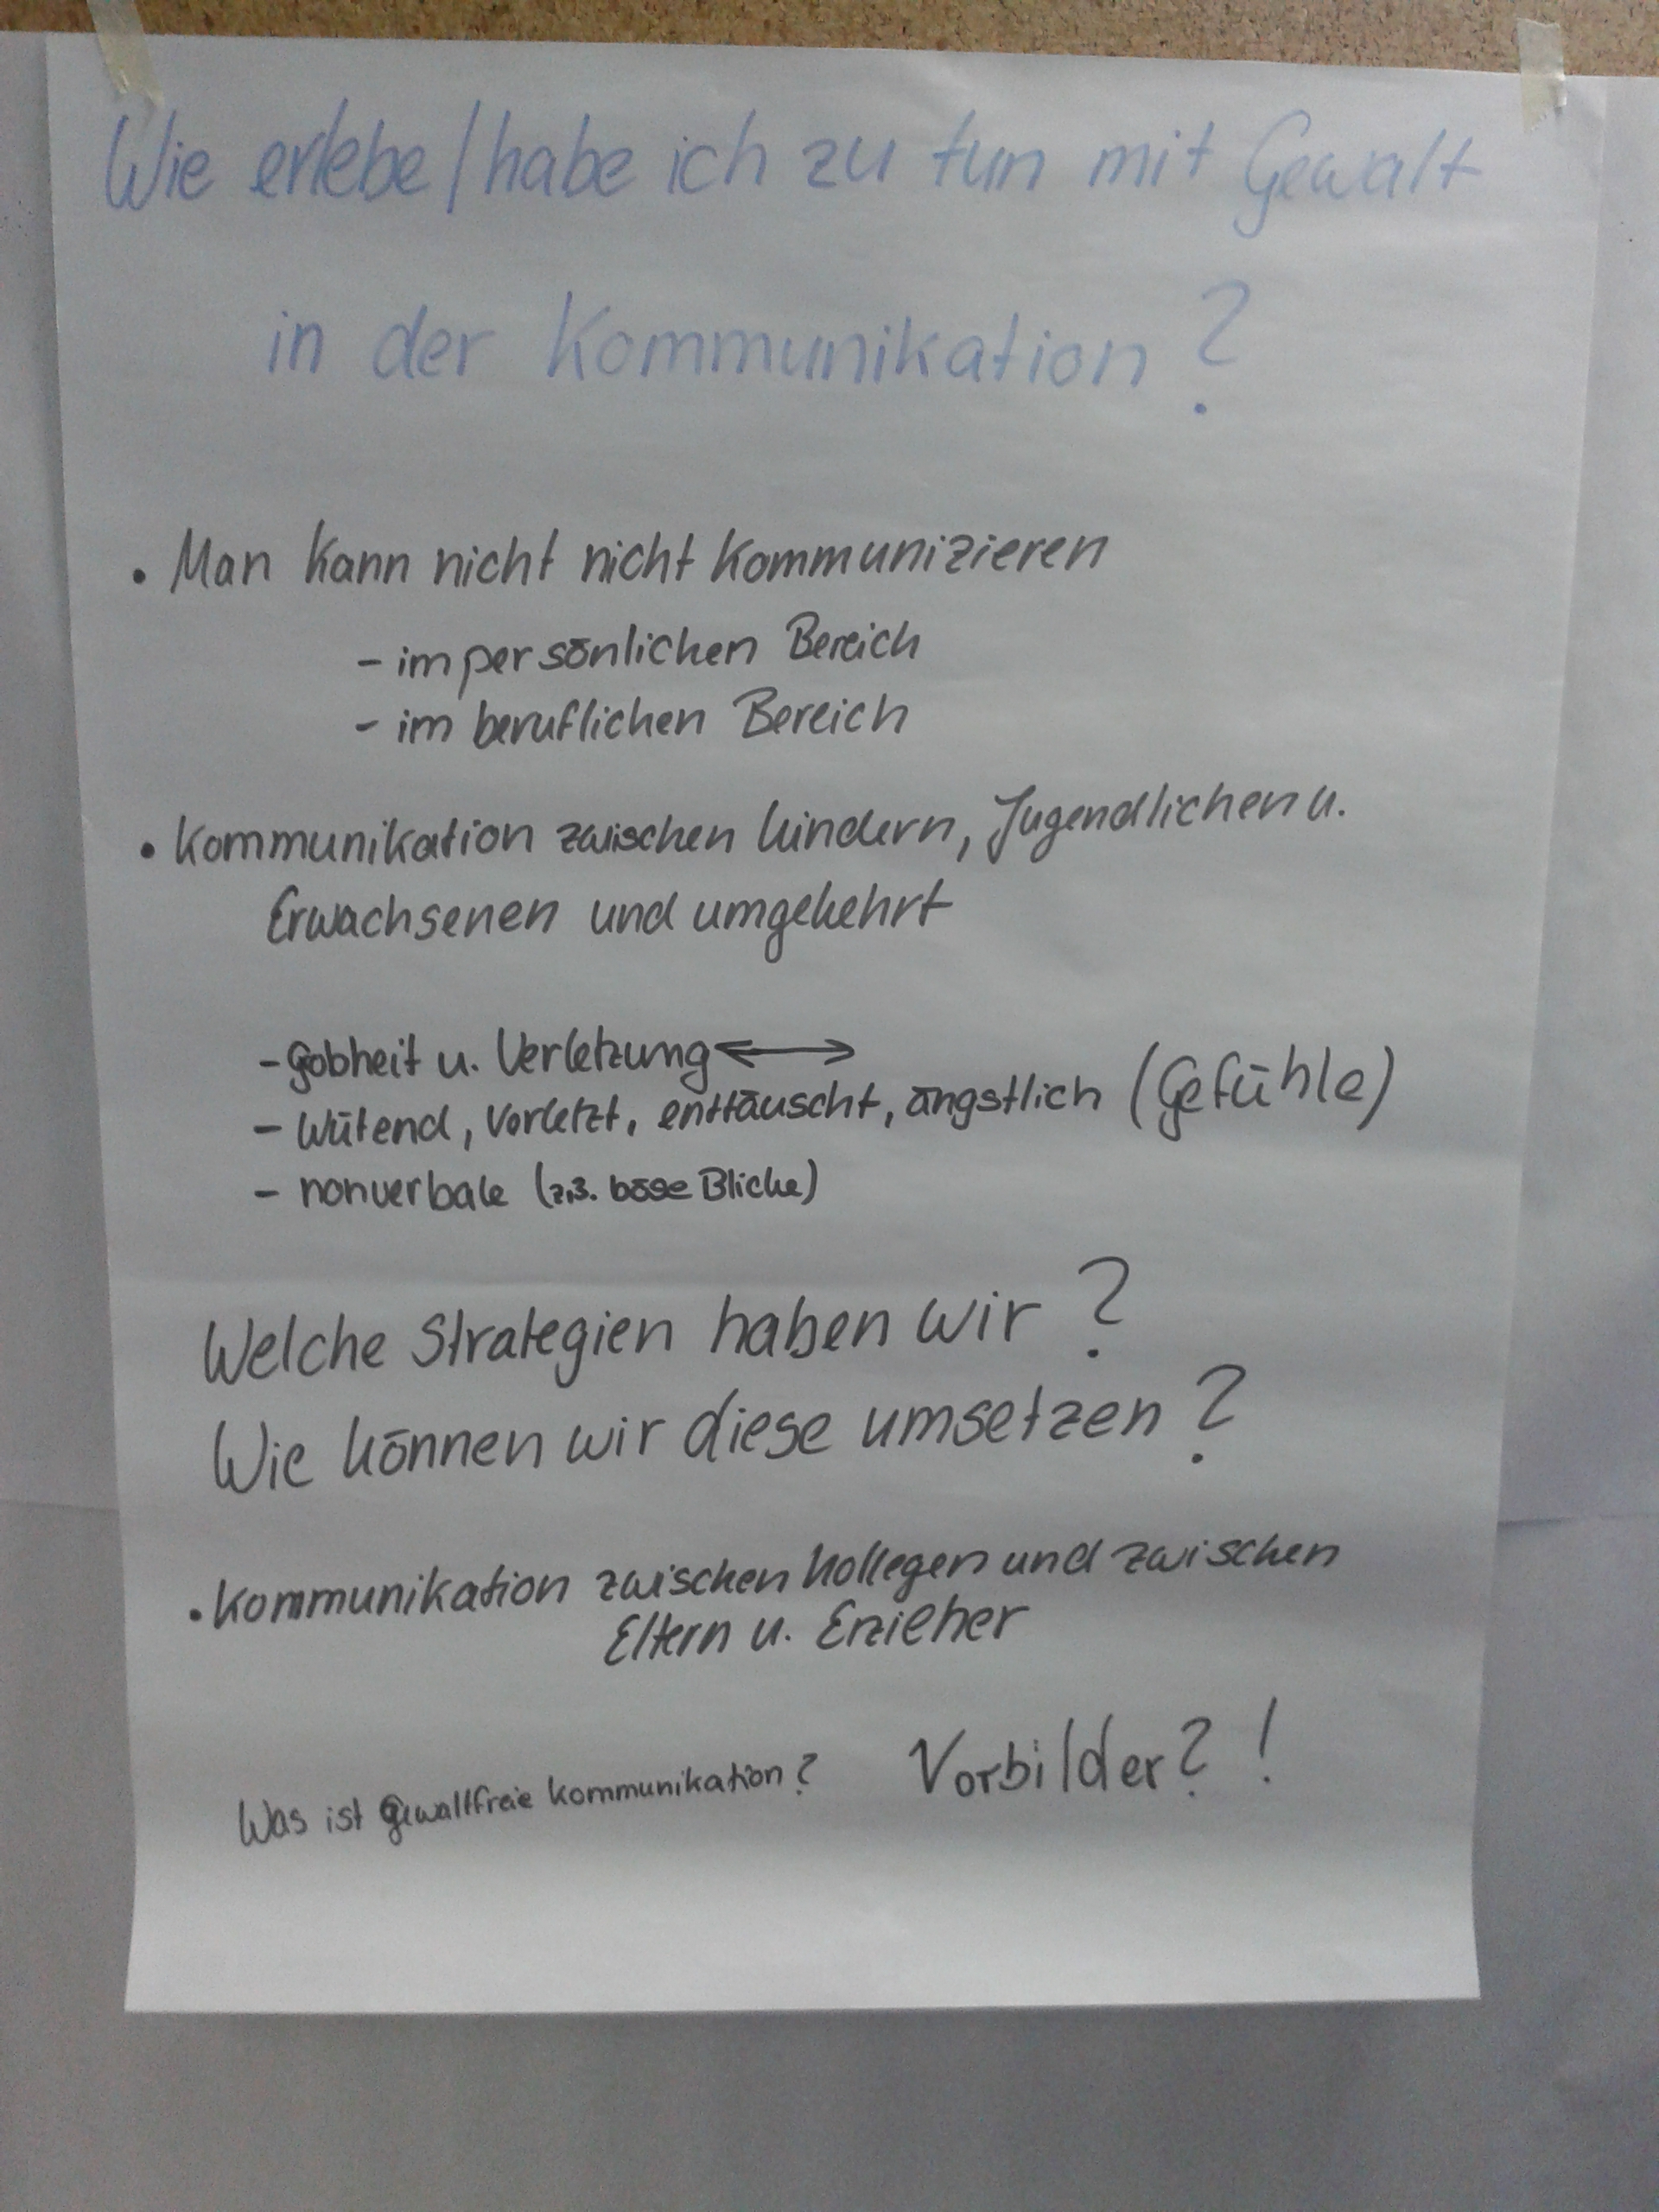 Wie erlebe/habe ich zu tun mit Gewalt
in der Kommunikation?
• Man kann nicht nicht kommunizieren
- im persönlichen Bereich
- im beruflichen Bereich
• Kommunikation zwischen Kindern, Jugendlichen u.
Erwachsenen und umgekehrt
- Gobheit u. Verletzung ↔
- Wütend, Verletzt, enttäuscht, ängstlich (Gefühle)
- nonverbale (z.B. böse Blicke)
Welche Strategien haben wir?
Wie können wir diese umsetzen?
• Kommunikation zwischen Kollegen und zwischen
Eltern u. Erzieher
Was ist gewaltfreie Kommunikation? Vorbilder?!